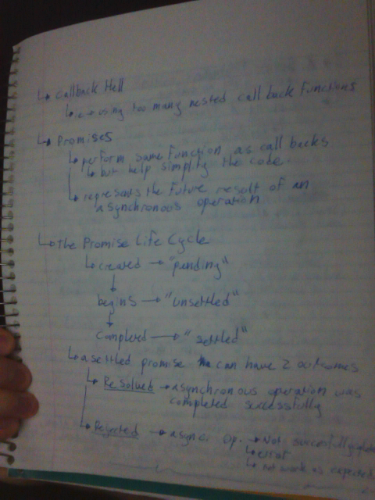 ↳ Callback Hell
↳ having too many nested call back functions
↳ Promises
↳ perform same function as call backs
↳ but help simplify the code.
↳ represents the future result of an
asynchronous operation
↳ The Promise Life Cycle
↳ created → "pending"
↓
begins → "unsettled"
↓
completed → "settled"
↳ a settled promise can have 2 outcomes
↳ Resolved → asynchronous operation was
completed successfully
↳ Rejected → async. op. → Not successfully
↳ error
↳ not work as expected